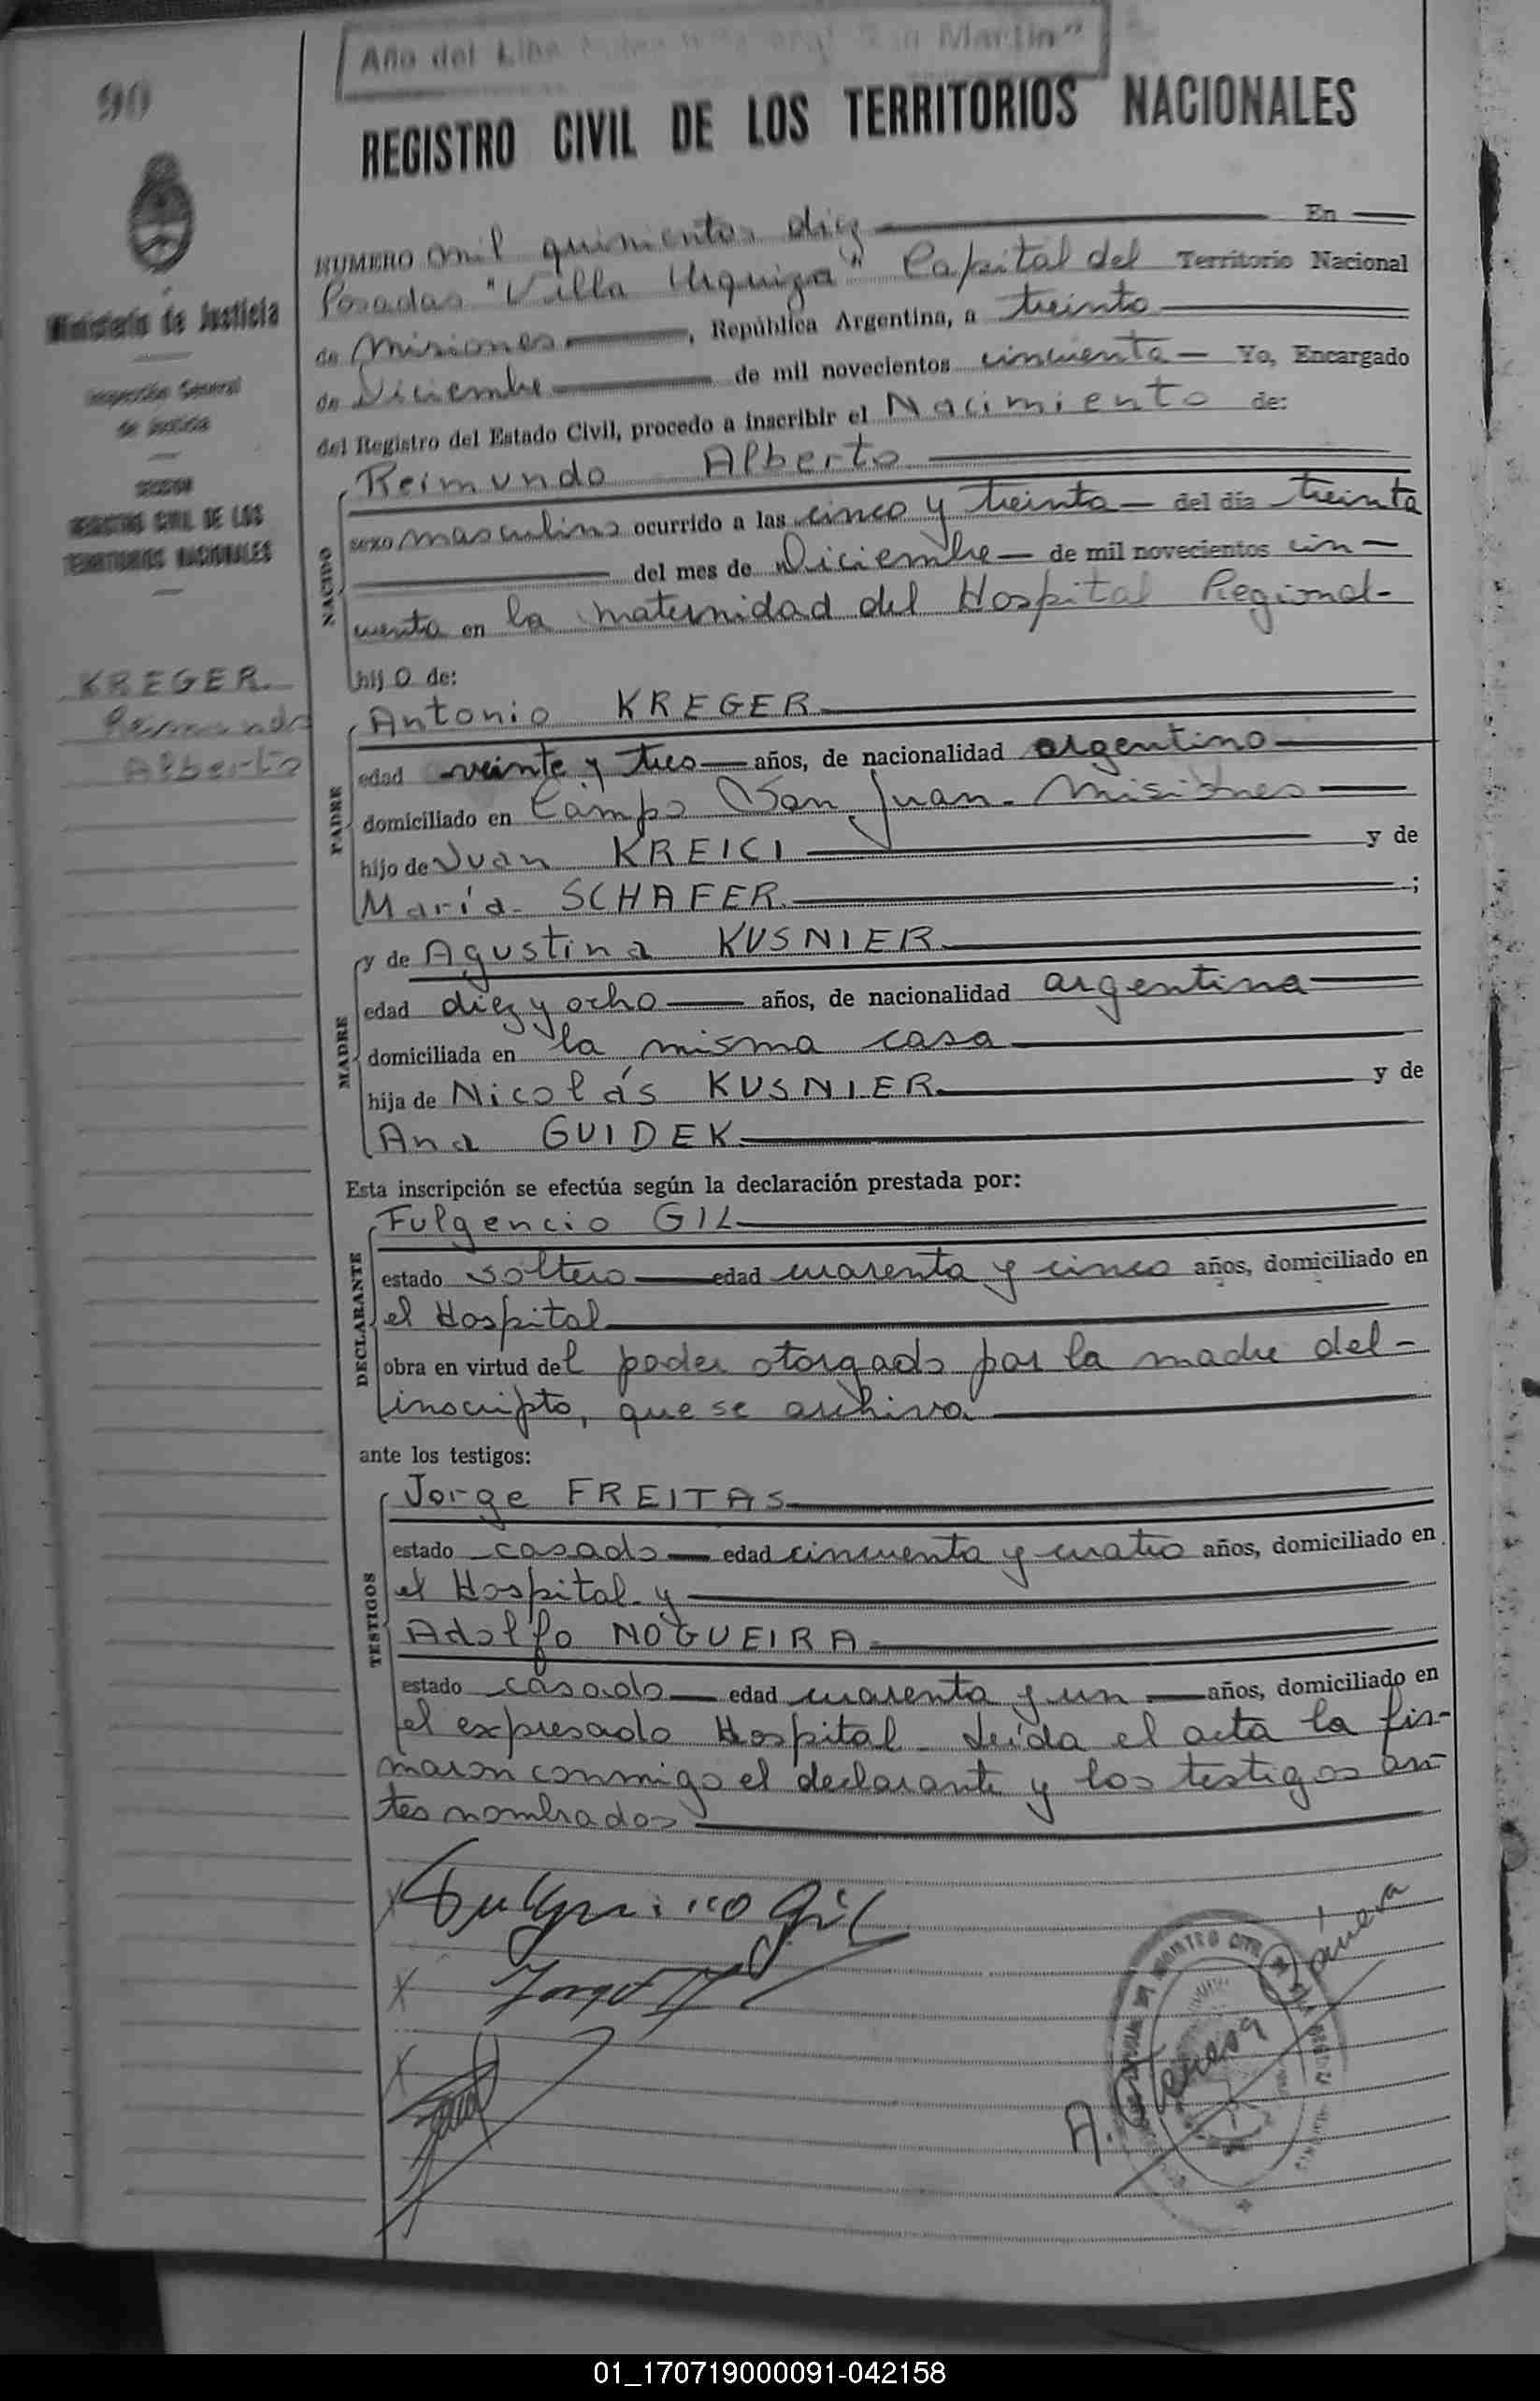 "Año del Libertador General San Martín"
90
REGISTRO CIVIL DE LOS TERRITORIOS NACIONALES
Ministerio de Justicia
Inspección General
de Justicia
SECCION
REGISTRO CIVIL DE LOS
TERRITORIOS NACIONALES
KREGER
Reimundo
Alberto
NUMERO mil quinientos diez En
Posadas "Villa Urquiza" Capital del Territorio Nacional
de Misiones, República Argentina, a treinta
de Diciembre de mil novecientos cincuenta Yo, Encargado
del Registro del Estado Civil, procedo a inscribir el Nacimiento de:
NACIDO
Reimundo Alberto
sexo masculino ocurrido a las cinco y treinta del día treinta
del mes de Diciembre de mil novecientos cin-
cuenta en la maternidad del Hospital Regional-
hijo de:
PADRE
Antonio KREGER
edad veinte y tres años, de nacionalidad argentino
domiciliado en Campo San Juan - Misiones
hijo de Juan KREICI y de
María SCHAFER ;
MADRE
y de Agustina KUSNIER
edad diez y ocho años, de nacionalidad argentina
domiciliada en la misma casa
hija de Nicolás KUSNIER y de
Ana GUIDEK
Esta inscripción se efectúa según la declaración prestada por:
DECLARANTE
Fulgencio GIL
estado soltero edad cuarenta y cinco años, domiciliado en
el Hospital
obra en virtud del poder otorgado por la madre del-
inscripto, que se archiva
ante los testigos:
TESTIGOS
Jorge FREITAS
estado casado edad cincuenta y cuatro años, domiciliado en
el Hospital y
Adolfo NOGUEIRA
estado casado edad cuarenta y un años, domiciliado en
el expresado Hospital - Leída el acta la fir-
maron conmigo el declarante y los testigos an-
tes nombrados
Fulgencio Gil
01_170719000091-042158